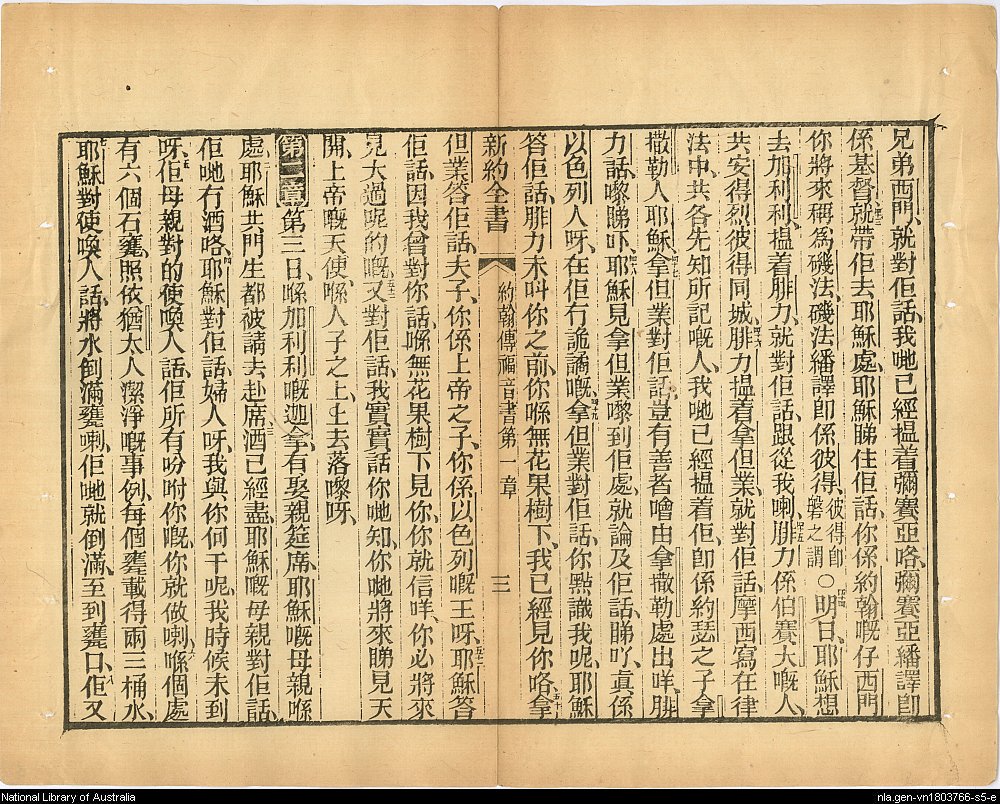 兄弟西門、就對佢話、我哋已經揾着彌賽亞咯、彌賽亞繙譯卽
係基督、就帶佢去耶穌處、耶穌睇住佢話、你係約翰嘅仔西門
你將來稱爲磯法、磯法繙譯卽係彼得、彼得卽磐之謂 〇明日、耶穌想
去加利利、揾着腓力、就對佢話、跟從我喇、腓力係伯賽大嘅人、
共安得烈彼得同城、腓力揾着拿但業、就對佢話、摩西寫在律
法中、共各先知所記嘅人、我哋已經揾着佢、卽係約瑟之子拿
撒勒人耶穌、拿但業對佢話、豈有善者噲由拿撒勒處出咩、腓
力話、嚟睇吓、耶穌見拿但業嚟到佢處、就論及佢話、睇吖、眞係
以色列人呀、在佢冇詭譎嘅、拿但業對佢話、你㸃識我呢、耶穌
答佢話、腓力未叫你之前、你喺無花果樹下、我已經見你咯、拿
新約全書 約翰傳福音書第一章 三
但業答佢話、夫子、你係上帝之子、你係以色列嘅王呀、耶穌答
佢話、因我曾對你話、喺無花果樹下見你、你就信咩、你必將來
見大過呢的嘅、又對佢話、我實實話你哋知、你哋將來睇見天
開、上帝嘅天使、喺人子之上、上去落嚟呀、
第二章 第三日、喺加利利嘅迦拿、有娶親筵席、耶穌嘅母親喺
處、耶穌共門生都被請去赴席、酒已經盡、耶穌嘅母親對佢話、
佢哋冇酒咯、耶穌對佢話、婦人呀、我與你何干呢、我時候未到
呀、佢母親對的使喚人話、佢所有吩咐你嘅、你就做喇、喺個處
有六個石甕、照依猶太人潔淨嘅事例、每個甕載得兩三桶水、
耶穌對使喚人話、將水倒滿甕喇、佢哋就倒滿、至到甕口、佢又
National Library of Australia
nla.gen-vn1803766-s5-e